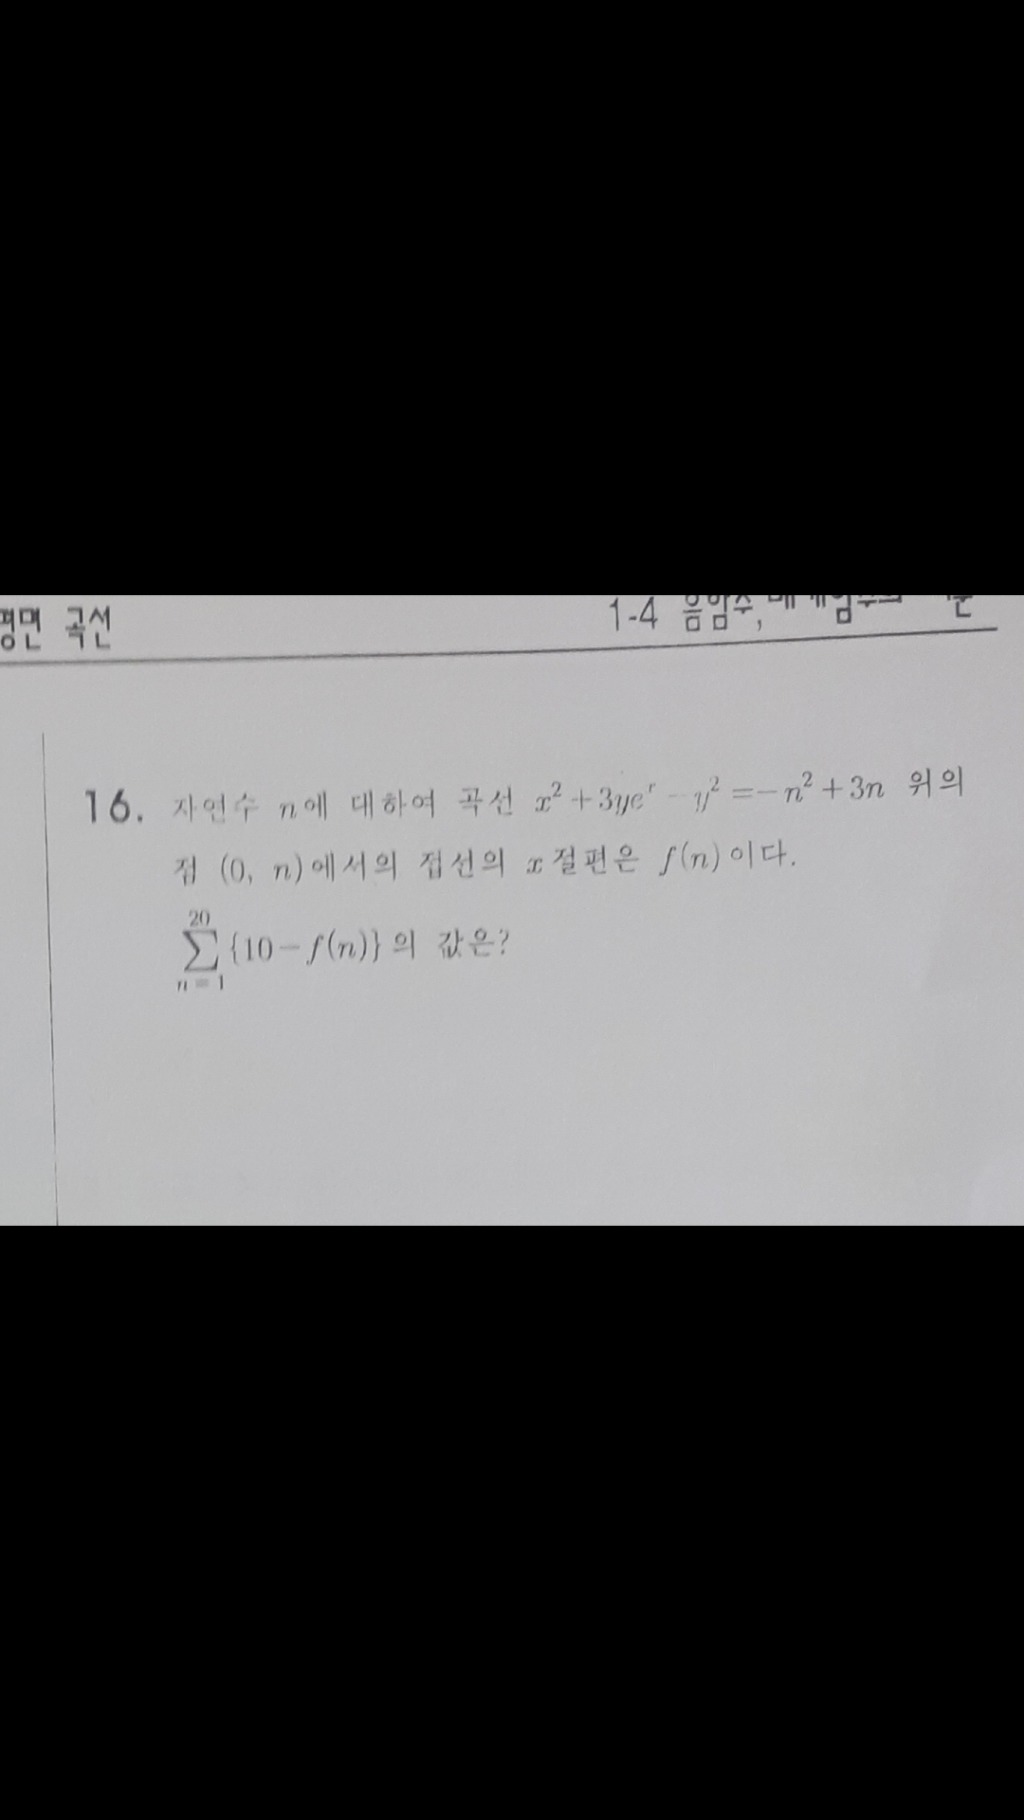 평면 곡선
1-4 음함수,
16. 자연수 n에 대하여 곡선 x² + 3yeˣ − y² = −n² + 3n 위의
점 (0, n)에서의 접선의 x절편은 f(n)이다.
20
∑ {10 − f(n)}의 값은?
n = 1